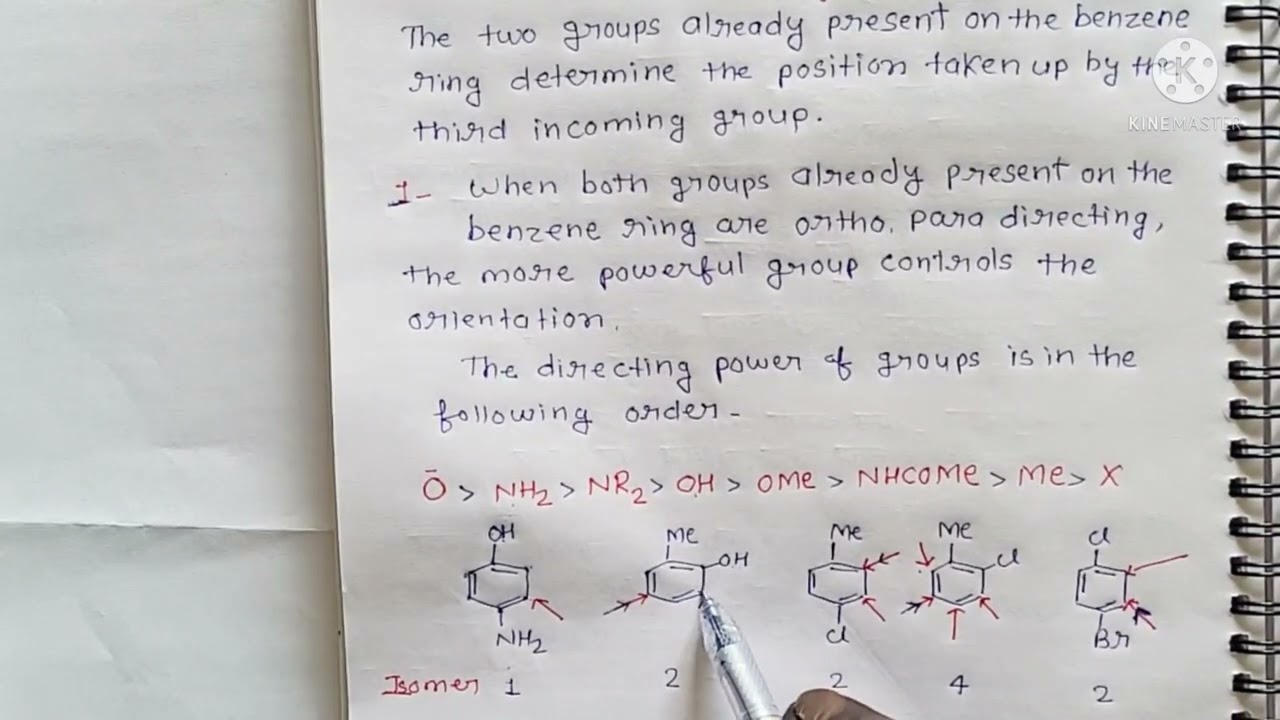 The two groups already present on the benzene
ring determine the position taken up by the
third incoming group.
KINEMASTER
1- When both groups already present on the
benzene ring are ortho, para directing,
the more powerful group controls the
orientation.
The directing power of groups is in the
following order-
Ō > NH₂ > NR₂ > OH > OMe > NHCOMe > Me > X
OH Me Me Me Cl
OH Cl
NH₂ Cl Br
Isomer 1 2 2 4 2